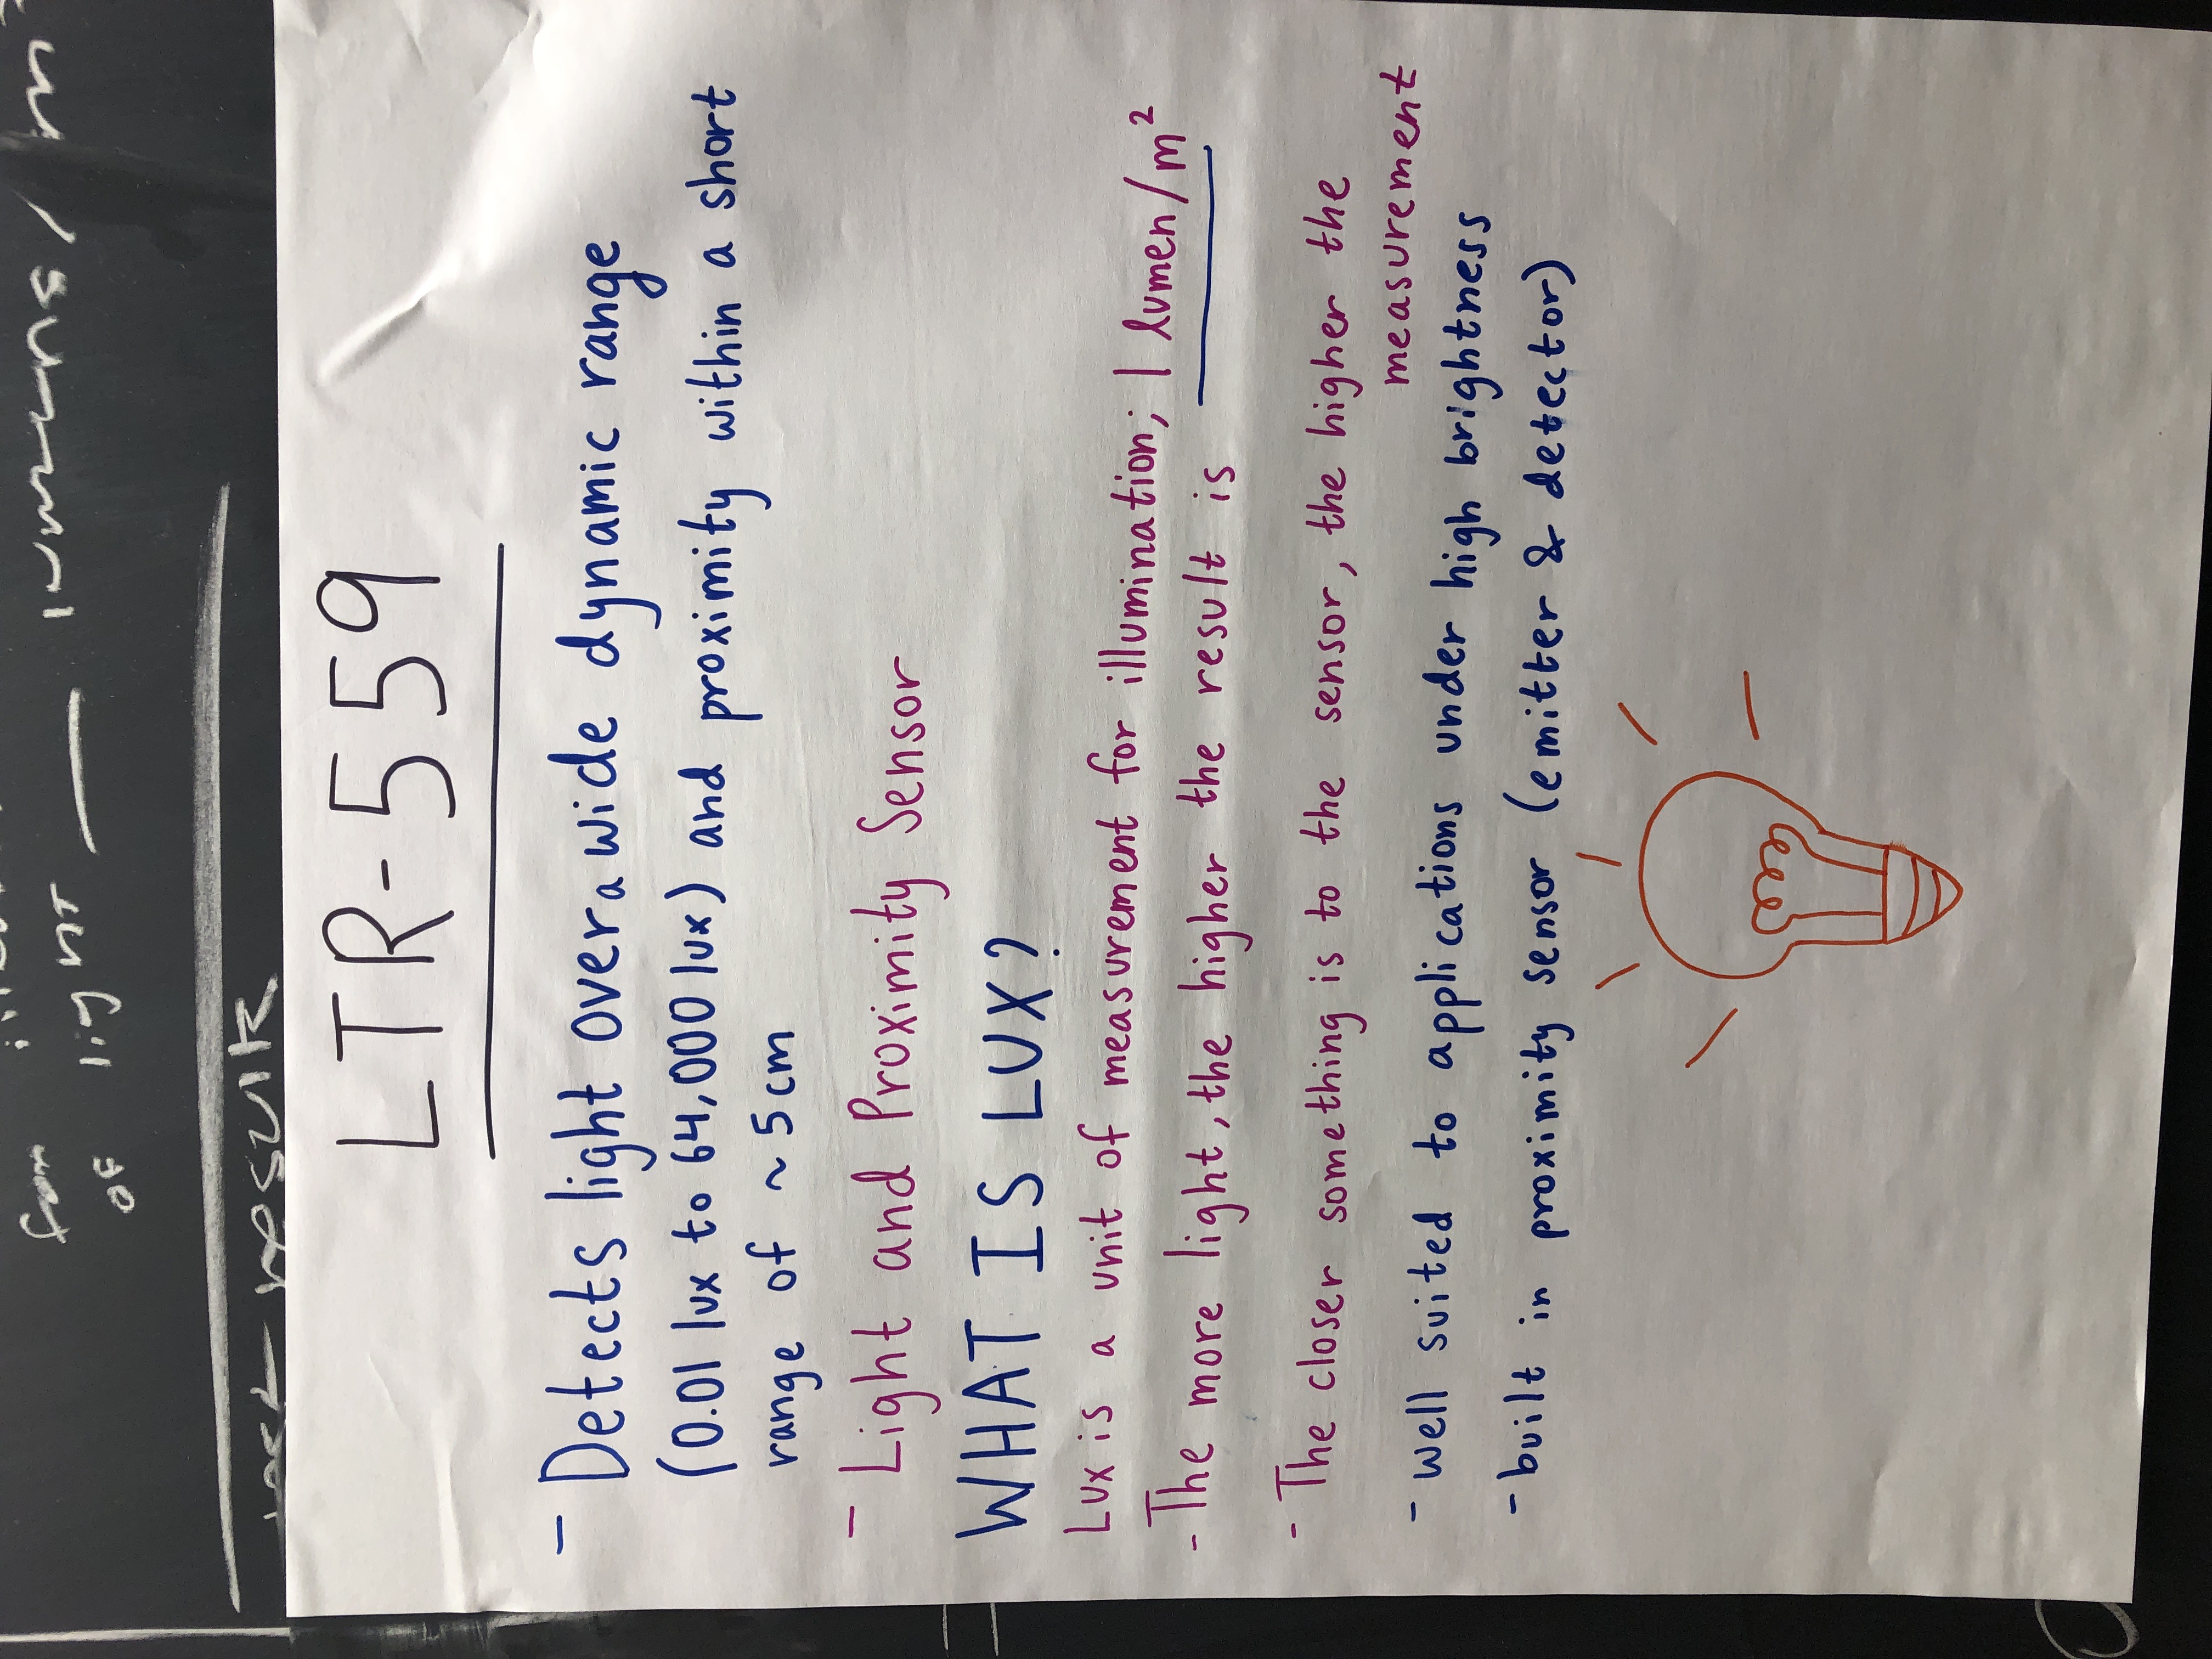 of light
result
LTR-559
- Detects light over a wide dynamic range
(0.01 lux to 64,000 lux) and proximity within a short
range of ~ 5cm
- Light and Proximity Sensor
WHAT IS LUX?
Lux is a unit of measurement for illumination; 1 lumen/m²
- The more light, the higher the result is
- The closer something is to the sensor, the higher the
measurement
- well suited to applications under high brightness
- built in proximity sensor (emitter & detector)